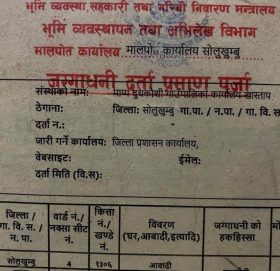 भूमि व्यवस्था सहकारी तथा गरिबी निवारण मन्त्रालय
भूमि व्यवस्थापन तथा अभिलेख विभाग
मालपोत कार्यालय, मालपोत कार्यालय सोलुखुम्बु
जग्गाधनी दर्ता प्रमाण पुर्जा
संस्थाको नाम: माप्य दुधकोशी गाउँपालिका कार्यालय खास्ताप
ठेगाना: जिल्ला: सोलुखुम्बु गा.पा. / न.पा. / गा. वि. स
दर्ता नं.:
जारी गर्ने कार्यालय: जिल्ला प्रशासन कार्यालय,
वेबसाइट: ईमेल:
दर्ता मिति (वि.स):
जिल्ला / गा. वि. स. / न. पा.
वार्ड नं./ नक्सा सीट नं.
कित्ता नं./ खण्डे नं.
विवरण (घर,आवादी,इत्यादि)
जग्गाधनी को हकहिस्सा
सोलुखुम्बु 4 १३०६ आवादी